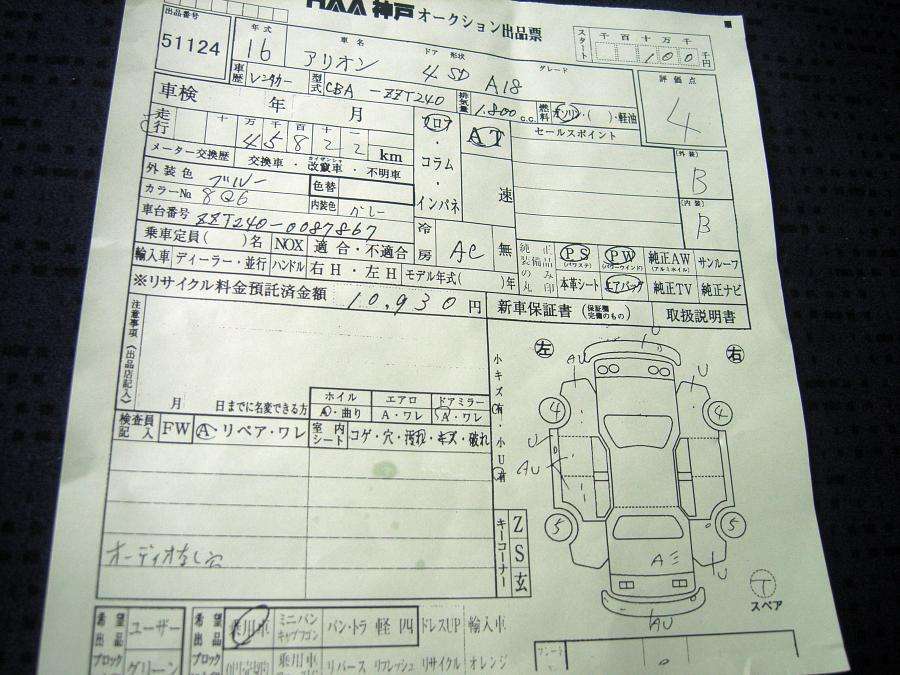 HAA 神戸 オークション出品票
出品番号
51124
年式
16
車名
アリオン
ドア 形状
4 SD
グレード
A18
スタート
千 百 十 万 千
100 千円
評価点
4
車歴 レンタカー
型式 CBA-ZZT240
排気量 1.800 c.c.
燃料 ガソリン・( )・軽油
車検 年 月
走行 十 万 千 百 十 一
45822 km
メーター交換歴 交換車・改竄車・不明車
フロア・コラム・インパネ
AT
速
セールスポイント
外装
B
内装
B
外装色 ブルー
カラーNo 8Q6
色替
内装色 グレー
車台番号 ZZT240-0087867
冷房 AC 無
乗車定員( )名 NOX 適合・不適合
輸入車 ディーラー・並行 ハンドル 右H・左H モデル年式( )年
純正装備品のみ丸印
PS (パワステ) PW (パワーウインド) 純正AW (アルミホイル) サンルーフ
本革シート エアバッグ 純正TV 純正ナビ
※リサイクル料金預託済金額 10,930 円
新車保証書 (保証欄完備のもの) 取扱説明書
注意事項(出品店記入)
月 日までに名変できる方
ホイル エアロ ドアミラー
A・曲り A・ワレ A・ワレ
検査員記入 FW A リペア・ワレ
室内シート コゲ・穴・汚れ・キズ・破れ
オーディオなし
小キズ有・小U有
キーコーナー Z S 玄
左 右
U
AU
U
4
4
U
AU
5
5
U
AU
T
スペア
希望出品ブロック ユーザー
グリーン
希望出品ブロック 乗用車 ミニバン キャブワゴン バン・トラ 軽 四 ドレスUP 輸入車
乗用車 リバース リフレッシュ リサイクル オレンジ